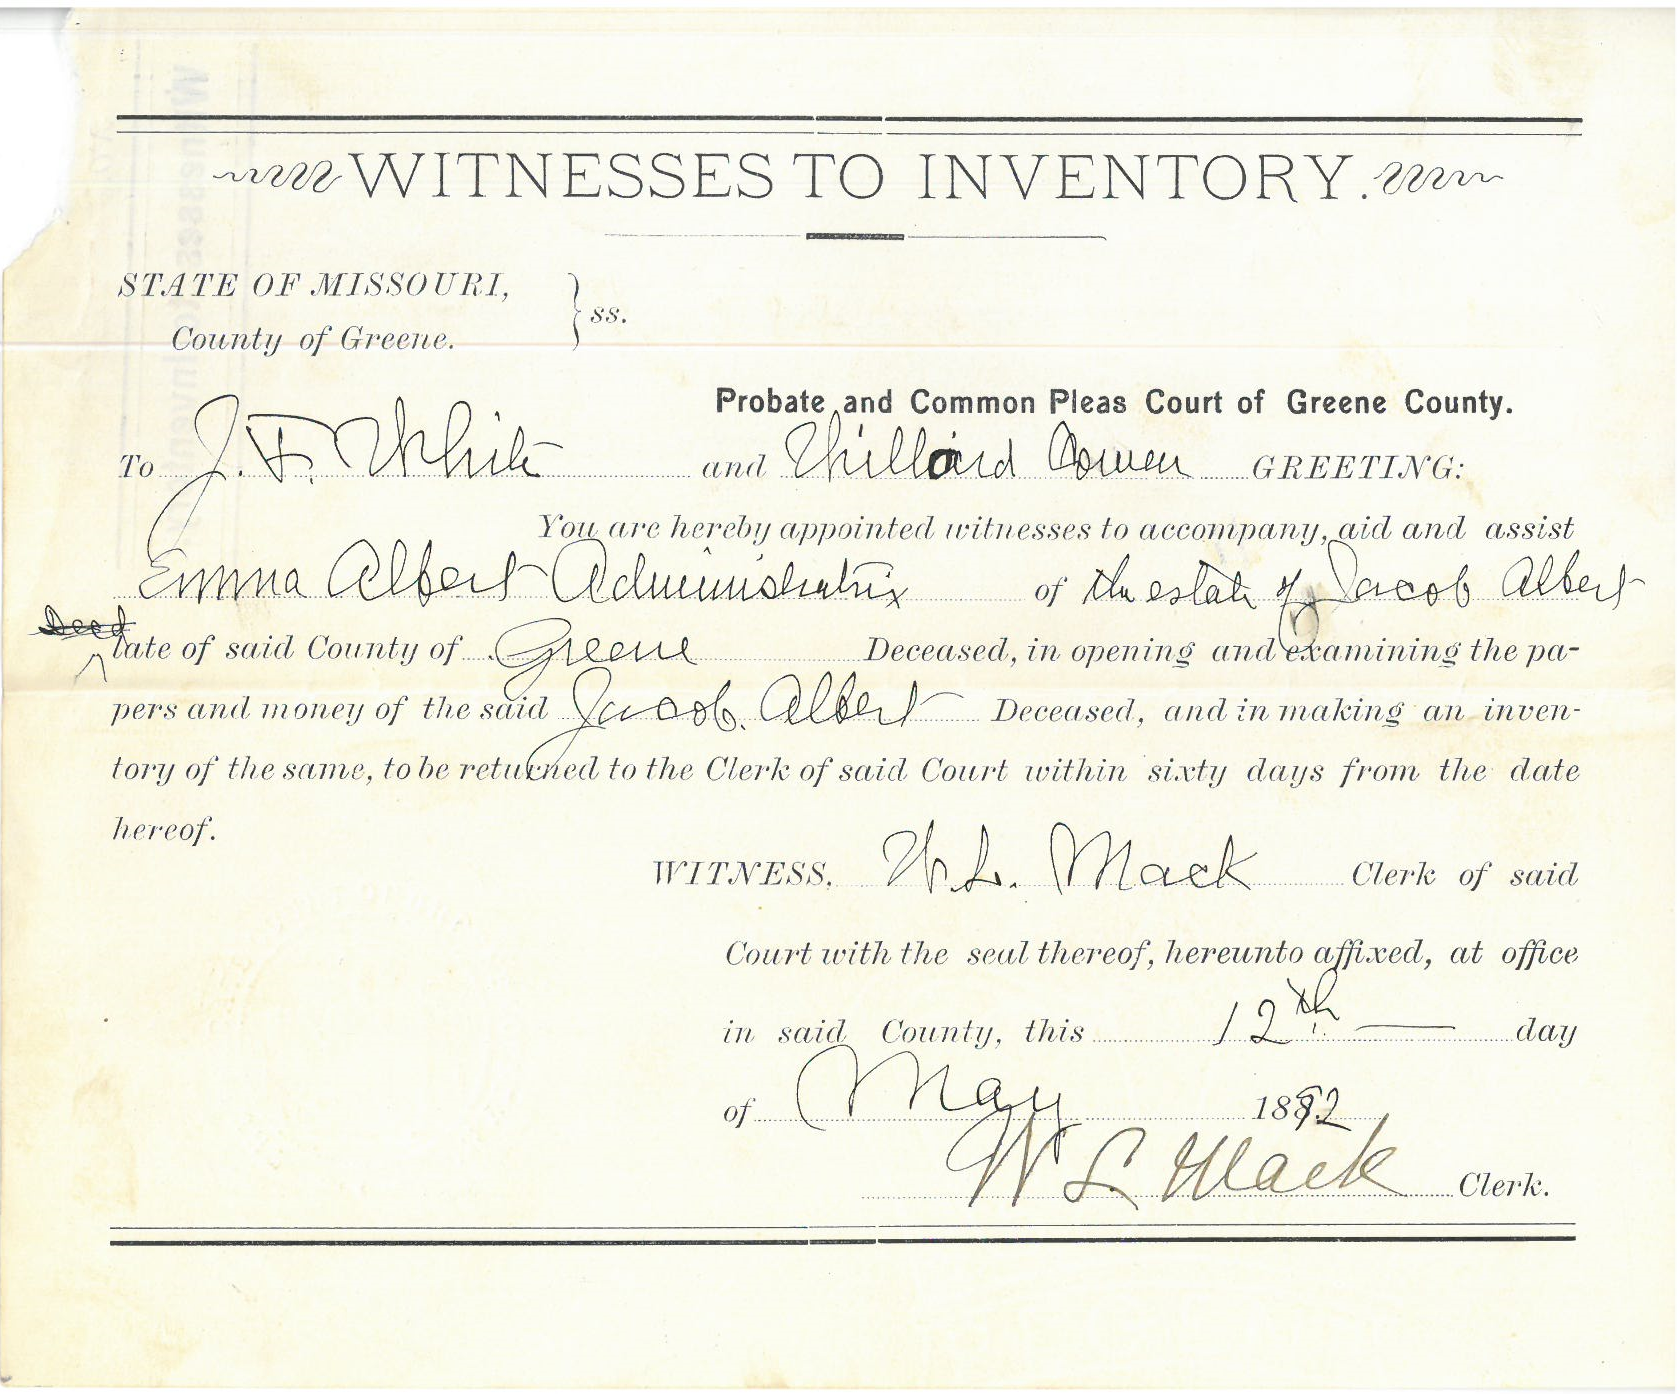 WITNESSES TO INVENTORY.
STATE OF MISSOURI,
County of Greene. } ss.
Probate and Common Pleas Court of Greene County.
To J. F. White and Willard Cowen GREETING:
You are hereby appointed witnesses to accompany, aid and assist
Emma Albert Administratrix of the estate of Jacob Albert
decd
late of said County of Greene Deceased, in opening and examining the pa-
pers and money of the said Jacob Albert Deceased, and in making an inven-
tory of the same, to be returned to the Clerk of said Court within sixty days from the date
hereof.
WITNESS, W. L. Mack Clerk of said
Court with the seal thereof, hereunto affixed, at office
in said County, this 12th day
of May 1892
W L Mack Clerk.